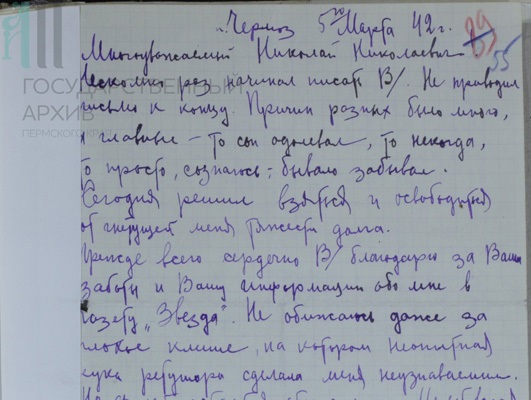 г. Чермоз 5го Марта 42 г.
Многоуважаемый Николай Николаевич
Несколько раз начинал писать В/. Не приводил
письмо к концу. Причин разных было много,
а главные – то сон одолевал, то некогда,
то просто, сознаюсь: бывало забывал.
Сегодня решил взяться и освободиться
от гнетущей меня тяжести долга.
Прежде всего сердечно В/ благодарю за Ваши
заботы и Вашу информацию обо мне в
газету „Звезда". Не обижаюсь даже за
плохое клише, на котором неопытная
рука ретушера сделала меня неузнаваемым.
55
ГОСУДАРСТВЕННЫЙ
АРХИВ
ПЕРМСКОГО КРАЯ